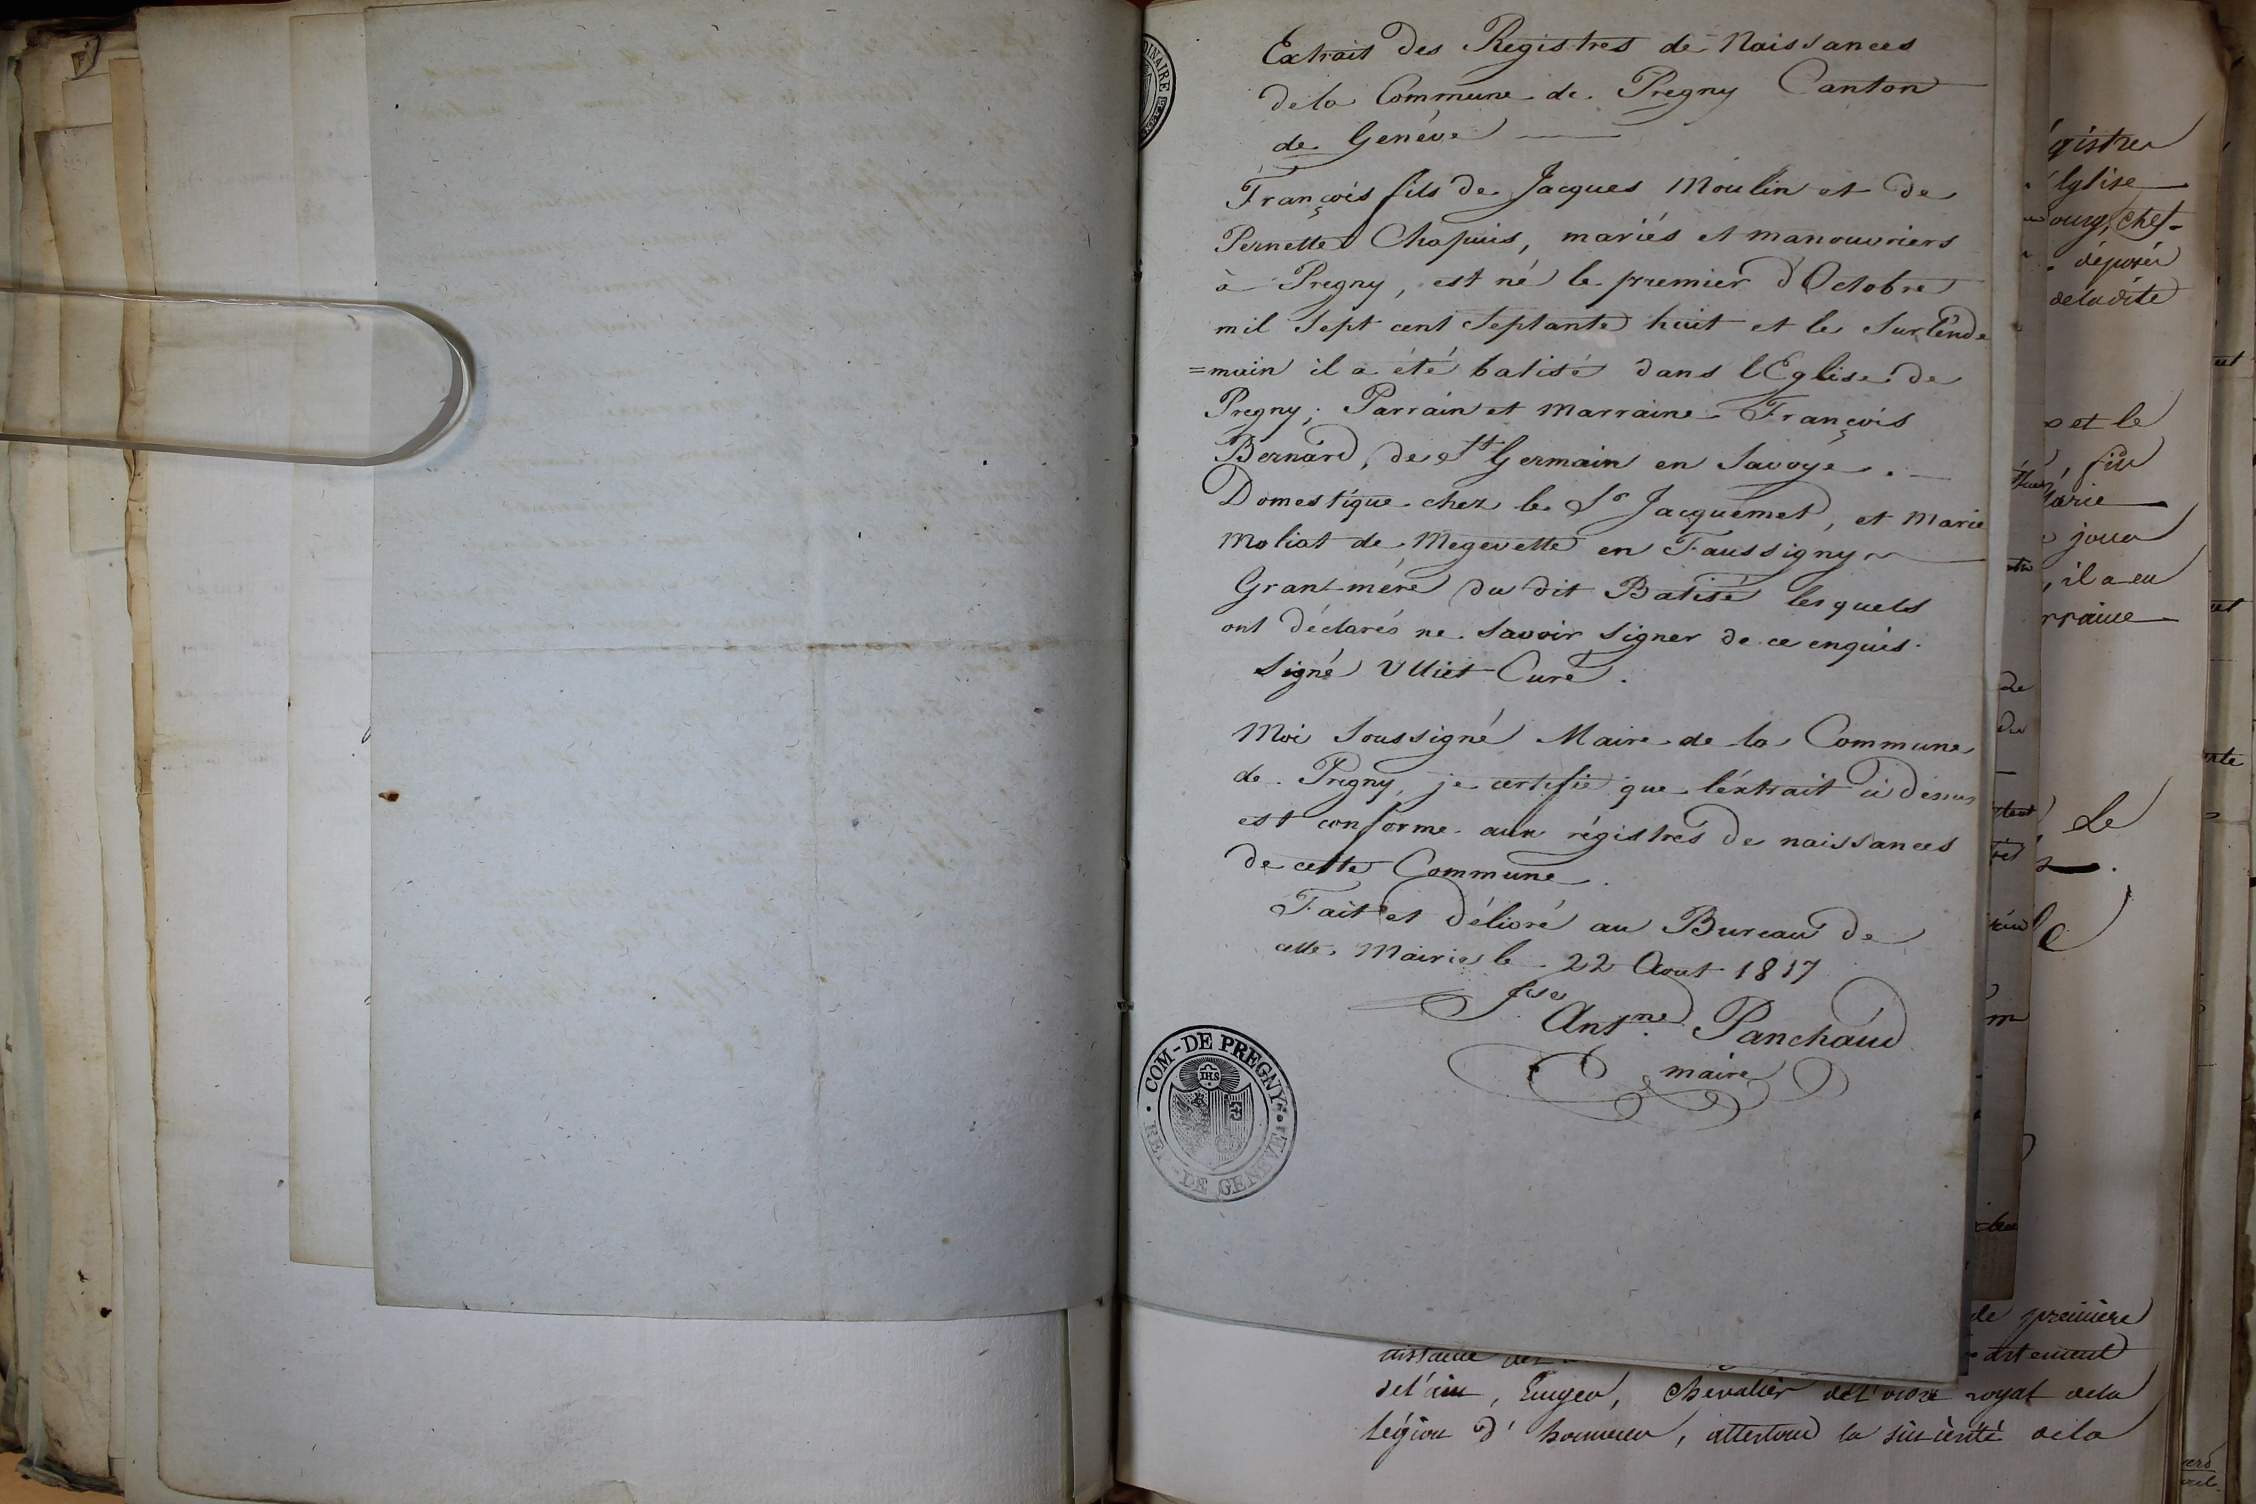 Extrait des Registres de Naissances
de la Commune de Pregny Canton
de Genève
François fils de Jacques Moulin et de
Pernette Chapuis, mariés et manouvriers
à Pregny, est né le premier d'Octobre
mil Sept cent Septante huit et le Surlende
=main il a été batisé dans l'Eglise de
Pregny; Parrain et Marraine François
Bernard, de St Germain en Savoye.
Domestique chez le Sr Jacquemet, et Marie
Moliat de Megevette en Faussigny
Grant-mére du dit Batisé lesquels
ont déclarés ne Savoir Signer de ce enquis.
Signé Ulliet Curé.
Moi Soussigné Maire de la Commune
de Pregny, je certifie que l'éxtrait ci dessus
est conforme aux régistres de naissances
de cette Commune.
Fait et délivré au Bureau de
cette Mairie le 22 Aout 1817
Antne. Panchaud
maire
COM-DE PREGNY
IHS
REP-DE GENEVE
DINAIRE
gistres
Eglise
ourg, chef-
déposés
de la dite
et le
fils
Marie
jour
, il a eu
rraine
de
du
Le
de première
artement
de l'ain, Chevalier de l'ordre royal de la
légion d'honneur, la sincérité de la